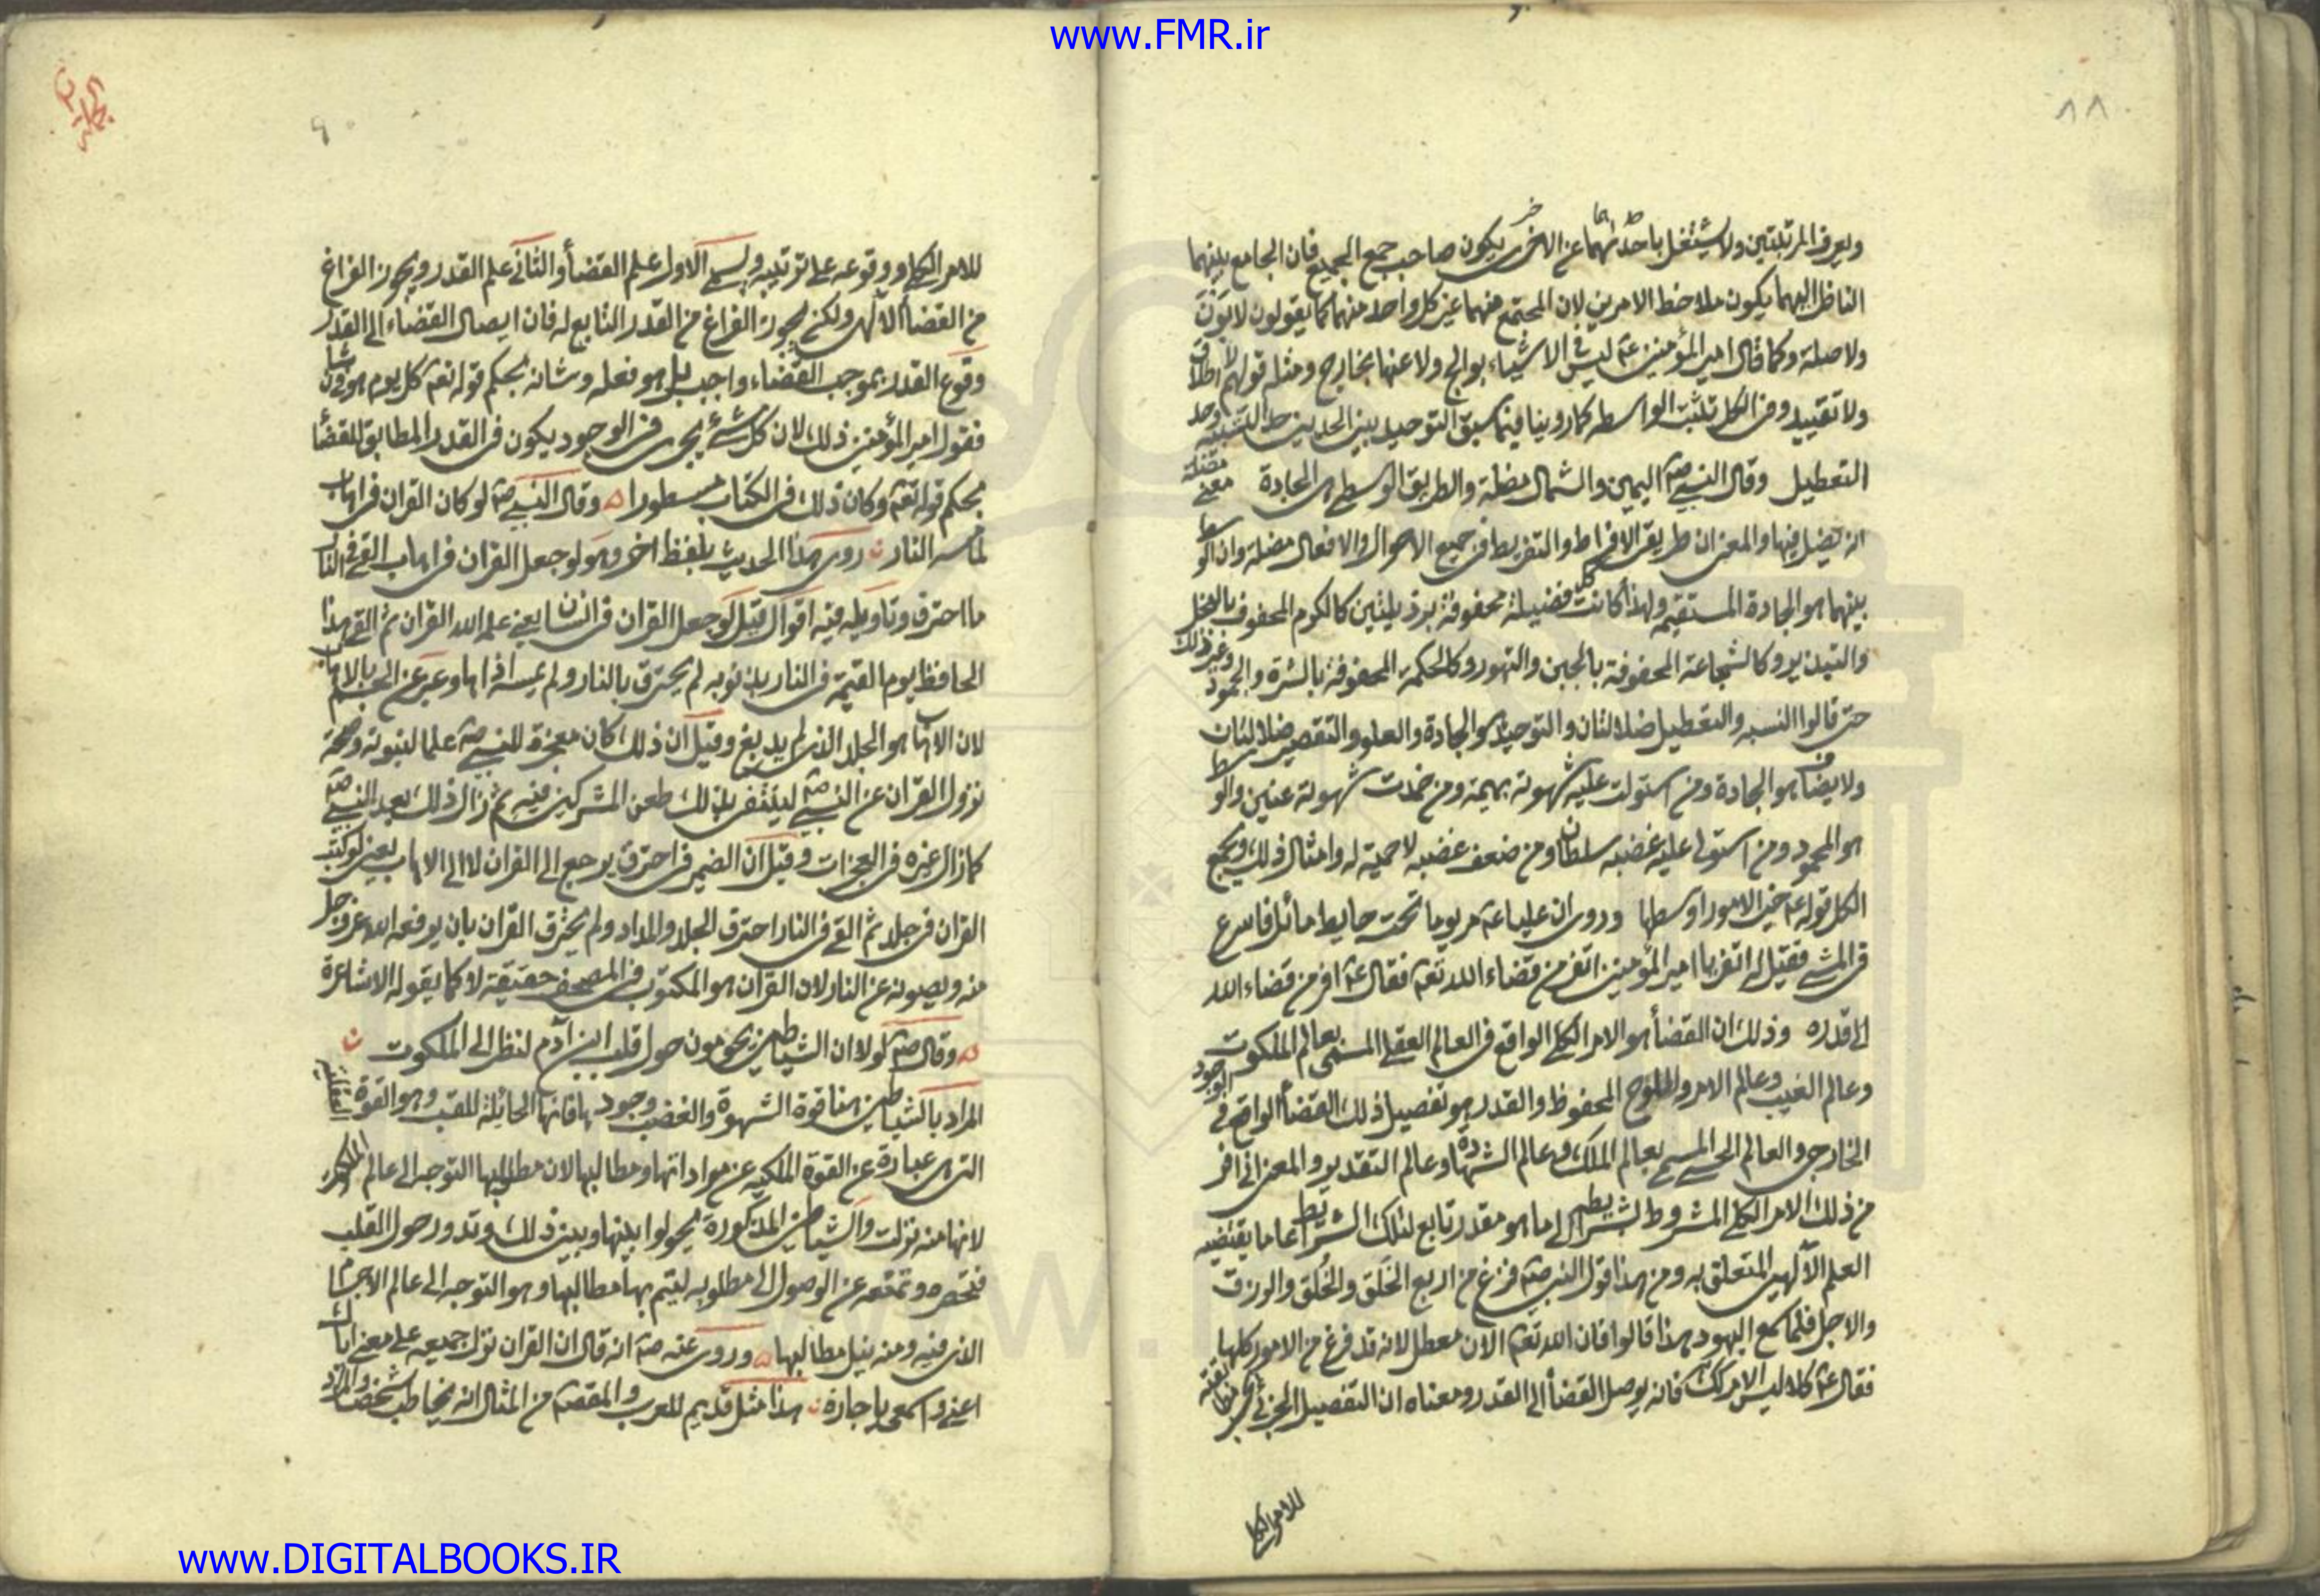 www.FMR.ir
٨٨
ويعرف المرتبتين ولا يشتغل باحدىهما عن الاخرى يكون صاحب جمع الجميع فان الجامع بينهما
الناظر اليهما يكون ملاحظ الامرين لان المجتمع منهما غير كل واحد منهما كما يقولون لا بون
ولا صلة وكما قال امير المؤمنين عم ليس في الاشياء بوالج ولا عنها بخارج ومثله قولهم لا اطلاق
ولا تقييد ومن الكل تثبت الواسطه كما روينا فيما سبق التوحيد بين الحدين حد التشبيه وحد
التعطيل وقال النبي صم اليمين والشمال مضلة والطريق الوسطى هى الجادة معنى مضلة
انه يضل فيها والمعنى ان طريق الافراط والتفريط في جميع الاحوال والافعال مضله وان الوسط
بينهما هو الجادة المستقيمه ولهذا كانت كل فضيلة محفوفة برذيلتين كالكرم المحفوف بالبخل
والتبذير وكالشجاعة المحفوفة بالجبن والتهور وكالحكمة المحفوفة بالشره والجمود وغير ذلك
حتى قالوا التشبه والتعطيل ضلالتان والتوحيد هو الجادة والعلو والتقصير ضلالتان
ولايضا هو الجادة ومن استولت عليه شهوته بهيمة ومن خمدت شهوته عنين والوسط
هو المحمود ومن استولى عليه غضبه سلطان ومن ضعف غضبه لا حمية له وامثال ذلك ويجمع
الكل قوله عم خير الامور اوسطها وروى ان عليا عم مر يوما تحت حايط مائل فاسرع
فى المشى فقيل له اتفر يا امير المؤمنين اتفر من قضاء الله تعم فقال عم افر من قضاء الله
الى قدره وذلك ان القضأ هو الامر الكلى الواقع فى العالم العقلى المسمى بعالم الملكوت
وعالم الغيب وعالم الامر واللوح المحفوظ والقدر هو تفصيل ذلك القضأ الواقع فى الوجود
الخارجى والعالم الحسى المسمى بعالم الملك وعالم الشهادة وعالم التقدير والمعنى انى افر
من ذلك الامر الكلى المشروط بشرايط الى ما هو مقدر تابع لتلك الشرايط عاما يقتضيه
العلم الآلهى المتعلق به ومن هذا قول النبى صم فرغ من اربع الخَلق والخُلق والرزق
والاجل فلما سمع اليهود هذا قالوا فان الله تعم الان معطل لانه قد فرغ من الامور كلها
فقال عم كلا ليس الامر كك فانه يوصل القضأ الى القدر ومعناه ان التفصيل الجزئى
للامر الكلى
للامر الكلى ووقوعه على ترتيبه ويسمى الاول علم القضأ والثانى علم القدر ويجوز الفراغ
من القضأ الآلهى ولكن لا يجوز الفراغ من القدر التابع له فان ايصال القضاء الى القدر
وقوع القدر بموجب القضاء واجب بل هو فعله وشانه بحكم قوله تعم كل يوم هو فى شان
فقول امير المؤمنين ذلك لان كل شئ يجرى فى الوجود يكون فى القدر المطابق للقضأ
بحكم قوله تعم وكان ذلك فى الكتاب مسطورا وقال النبى صم لو كان القران فى اهاب
لما مسه النار روى هذا الحديث بلفظ اخر وهو لو جعل القران فى اهاب القى فى النار
ما احترق وتاويله فيه اقوال قيل لو جعل القران فى انسان يعنى علم الله القران ثم القى هذا
الحافظ يوم القيمة فى النار بذنوبه لم يحترق بالنار ولم يمسه اذاها وعبر عن الجسم بالاهاب
لان الاهاب هو الجلد الذى لم يدبغ وقيل ان ذلك كان معجزة للنبى صم علما لنبوته وصحة
نزول القران عن النبى صم لينتفى بذلك طعن المشركين فيه ثم زال ذلك بعد النبى صم
كما زال غيره فى المعجزات وقيل ان الضمير فى احترق يرجع الى القران لا الى الاهاب يعنى لو كتب
القران فى جلد ثم القى فى النار احترق الجلد والمداد ولم يحترق القران بان يرفعه الله عز وجل
منه ويصونه عن النار لان القران هو المكتوب فى المصحف حقيقة لا كما يقوله الاشاعرة
وقال صم لولا ان الشياطين يحومون حول قلب ابن آدم لنظر الى الملكوت
المراد بالشياطين هنا قوة الشهوة والغضب ووجود هافانها الحائلة للقلب وهو القوة العقلية
التى هى عبارة عن القوة الملكيه عن مراداتها ومطالبها لان مطلبها التوجه الى عالم الملكوت
لانها منه نزلت والشياطين المذكورة يحولوا بينها وبين ذلك وتدور حول القلب
وتمنعه عن الوصول الى مطلوبه ليتم بها مطالبها وهو التوجه الى عالم الاجسام
الذى فيه ومنه نيل مطالبها وروى عنه صم انه قال ان القران نزل جميعه على معنى اياك
اعنى واسمعى يا جارة هذا مثل قديم للعرب والمقصد من المثال انه يخاطب شخصا والمراد
www.DIGITALBOOKS.IR